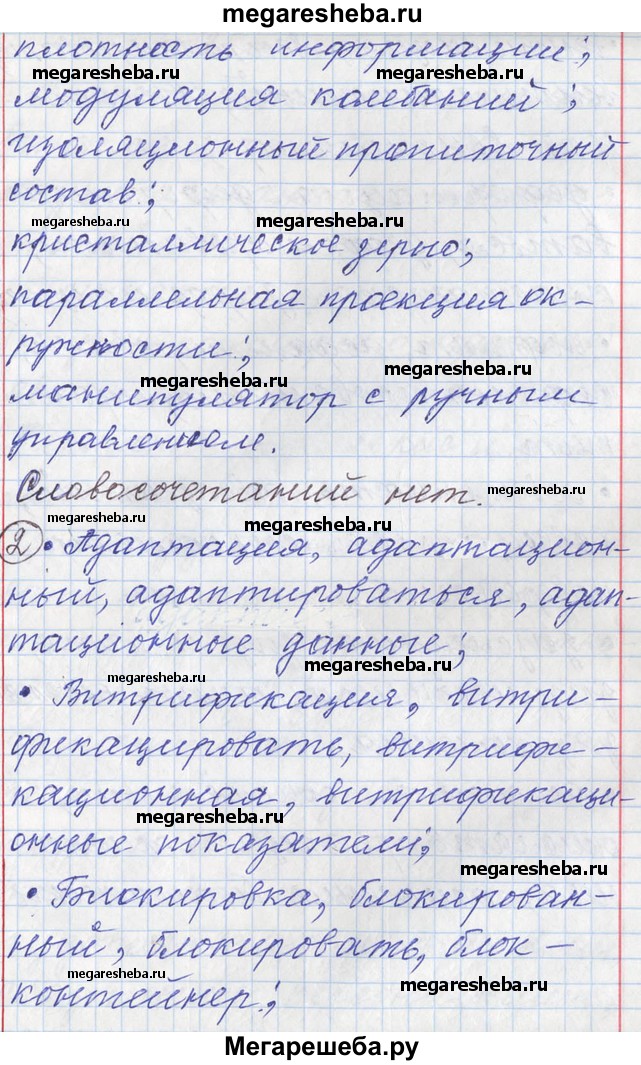 megaresheba.ru
плотность информации;
megaresheba.ru megaresheba.ru
модуляция колебаний;
изоляционный пропиточный
состав;
megaresheba.ru megaresheba.ru
кристаллическое зерно;
параллельная проекция ок-
ружности;
megaresheba.ru megaresheba.ru
манипулятор с ручным
управлением.
Словосочетаний нет.
megaresheba.ru
megaresheba.ru megaresheba.ru
2 • Адаптация, адаптацион-
ный, адаптироваться, адап-
тационные данные;
megaresheba.ru
megaresheba.ru
• Витрификация, витри-
фикацировать, витрифи-
кационная, витрификаци-
megaresheba.ru
онные показатели;
megaresheba.ru
• Блокировка, блокирован-
ный, блокировать, блок-
megaresheba.ru
контейнер.;
megaresheba.ru
Мегарешеба.ру